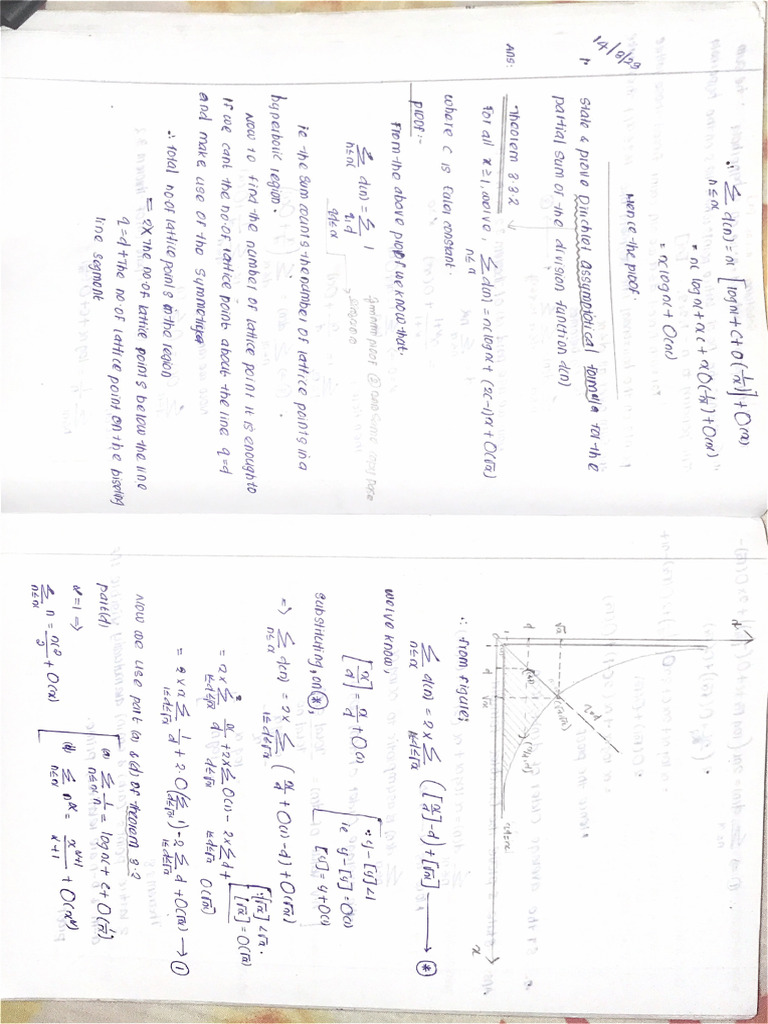 ∴ ∑ d(n) = x [log x + C + O(1/x)] + O(x)
n≤x
= x log x + xC + x O(1/x) + O(x)
= x log x + O(x)
Hence the proof.
14/8/23
1. State & prove Dirichlet assymptotical formula for the
partial sum of the division function d(n)
Ans:
Theorem 3.3.2
For all x ≥ 1, we've, ∑ d(n) = x log x + (2C-1)x + O(√x)
n≤x
where C is Euler constant
proof:-
From the above proof we know that.
∑ d(n) = ∑ 1
n≤x q,d
qd≤x
ie the sum counts the number of lattice points in a
hyperbolic region.
Now to find the number of lattice point it is enough to
If we cant the no. of lattice points about the line q=d
and make use of the symmetry
∴ total no of lattice points in the region
= 2x the no of lattice points below the line
q=d + the no. of lattice point on the bisecting
line segment
d
√x
d
1
1 d √x
q=d
qd=x
x
∴ from figure;
∑ d(n) = 2x ∑ ([x/d] - d) + [√x] → (*)
n≤x 1≤d≤√x
we've know,
[x/d] = x/d + O(1)
∵ y-[y]<1
ie y-[y] = O(1)
[y] = y + O(1)
substituting, on (*),
⇒ ∑ d(n) = 2x ∑ (x/d + O(1) - d) + O(√x)
n≤x 1≤d≤√x
[∵[√x] < √x.
[√x] = O(√x)
= 2x ∑ x/d + 2x ∑ O(1) - 2x ∑ d + O(√x)
1≤d≤√x d≤√x 1≤d≤√x
= 2x x ∑ 1/d + 2·O(∑ 1) - 2 ∑ d + O(√x) → (1)
1≤d≤√x 1≤d≤√x 1≤d≤√x
Now we use part (a) & (d) of theorem 3.2
part(d)
α=1 ⇒
∑ n = x²/2 + O(x)
n≤x
(a) ∑ 1/n = log x + C + O(1/x)
n≤x
(d) ∑ n^α = x^(α+1)/α+1 + O(x^α)
n≤x